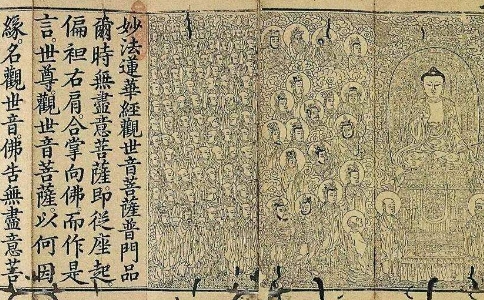 妙法蓮華經觀世音菩薩普門品
爾時無盡意菩薩即從座起
偏袒右肩合掌向佛而作是
言世尊觀世音菩薩以何因
緣名觀世音佛告無盡意菩